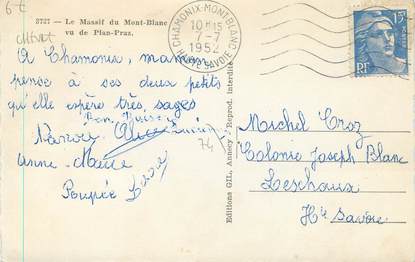 6€
3727 - Le Massif du Mont-Blanc
vu de Plan-Praz.
CHAMONIX-MONT-BLANC
10H15
7-7
1952
HTE SAVOIE
15F
RF
A Chamonix, maman
pense à ses deux petits
qu'elle espère très sages
Bon Baisers
Nanou
Anne-Marie
Poupée
74
Editions GIL, Annecy - Reprod. interdite
Michel Croz
Colonie Joseph Blanc
Leschaux
Hte Savoie